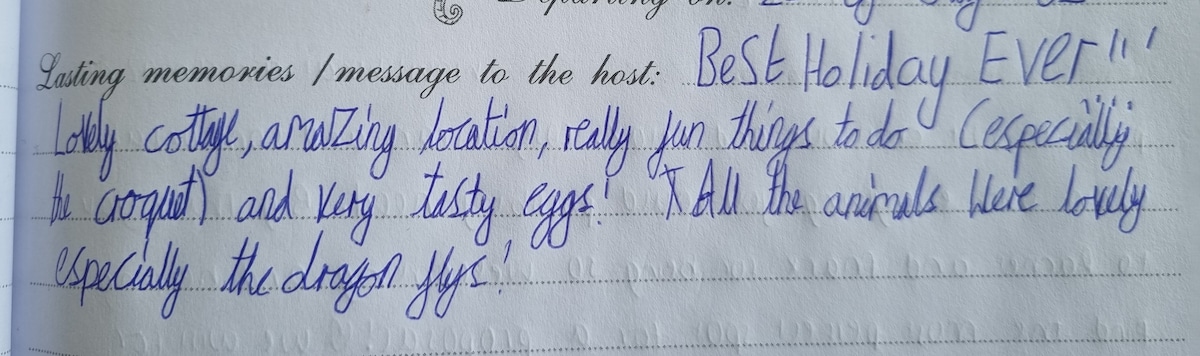 Departing on:
Lasting memories / message to the host: Best Holiday Ever!!!
Lovely cottage, amazing location, really fun things to do (especially
the croquet) and very tasty eggs! X All the animals were lovely
especially the dragon flys!